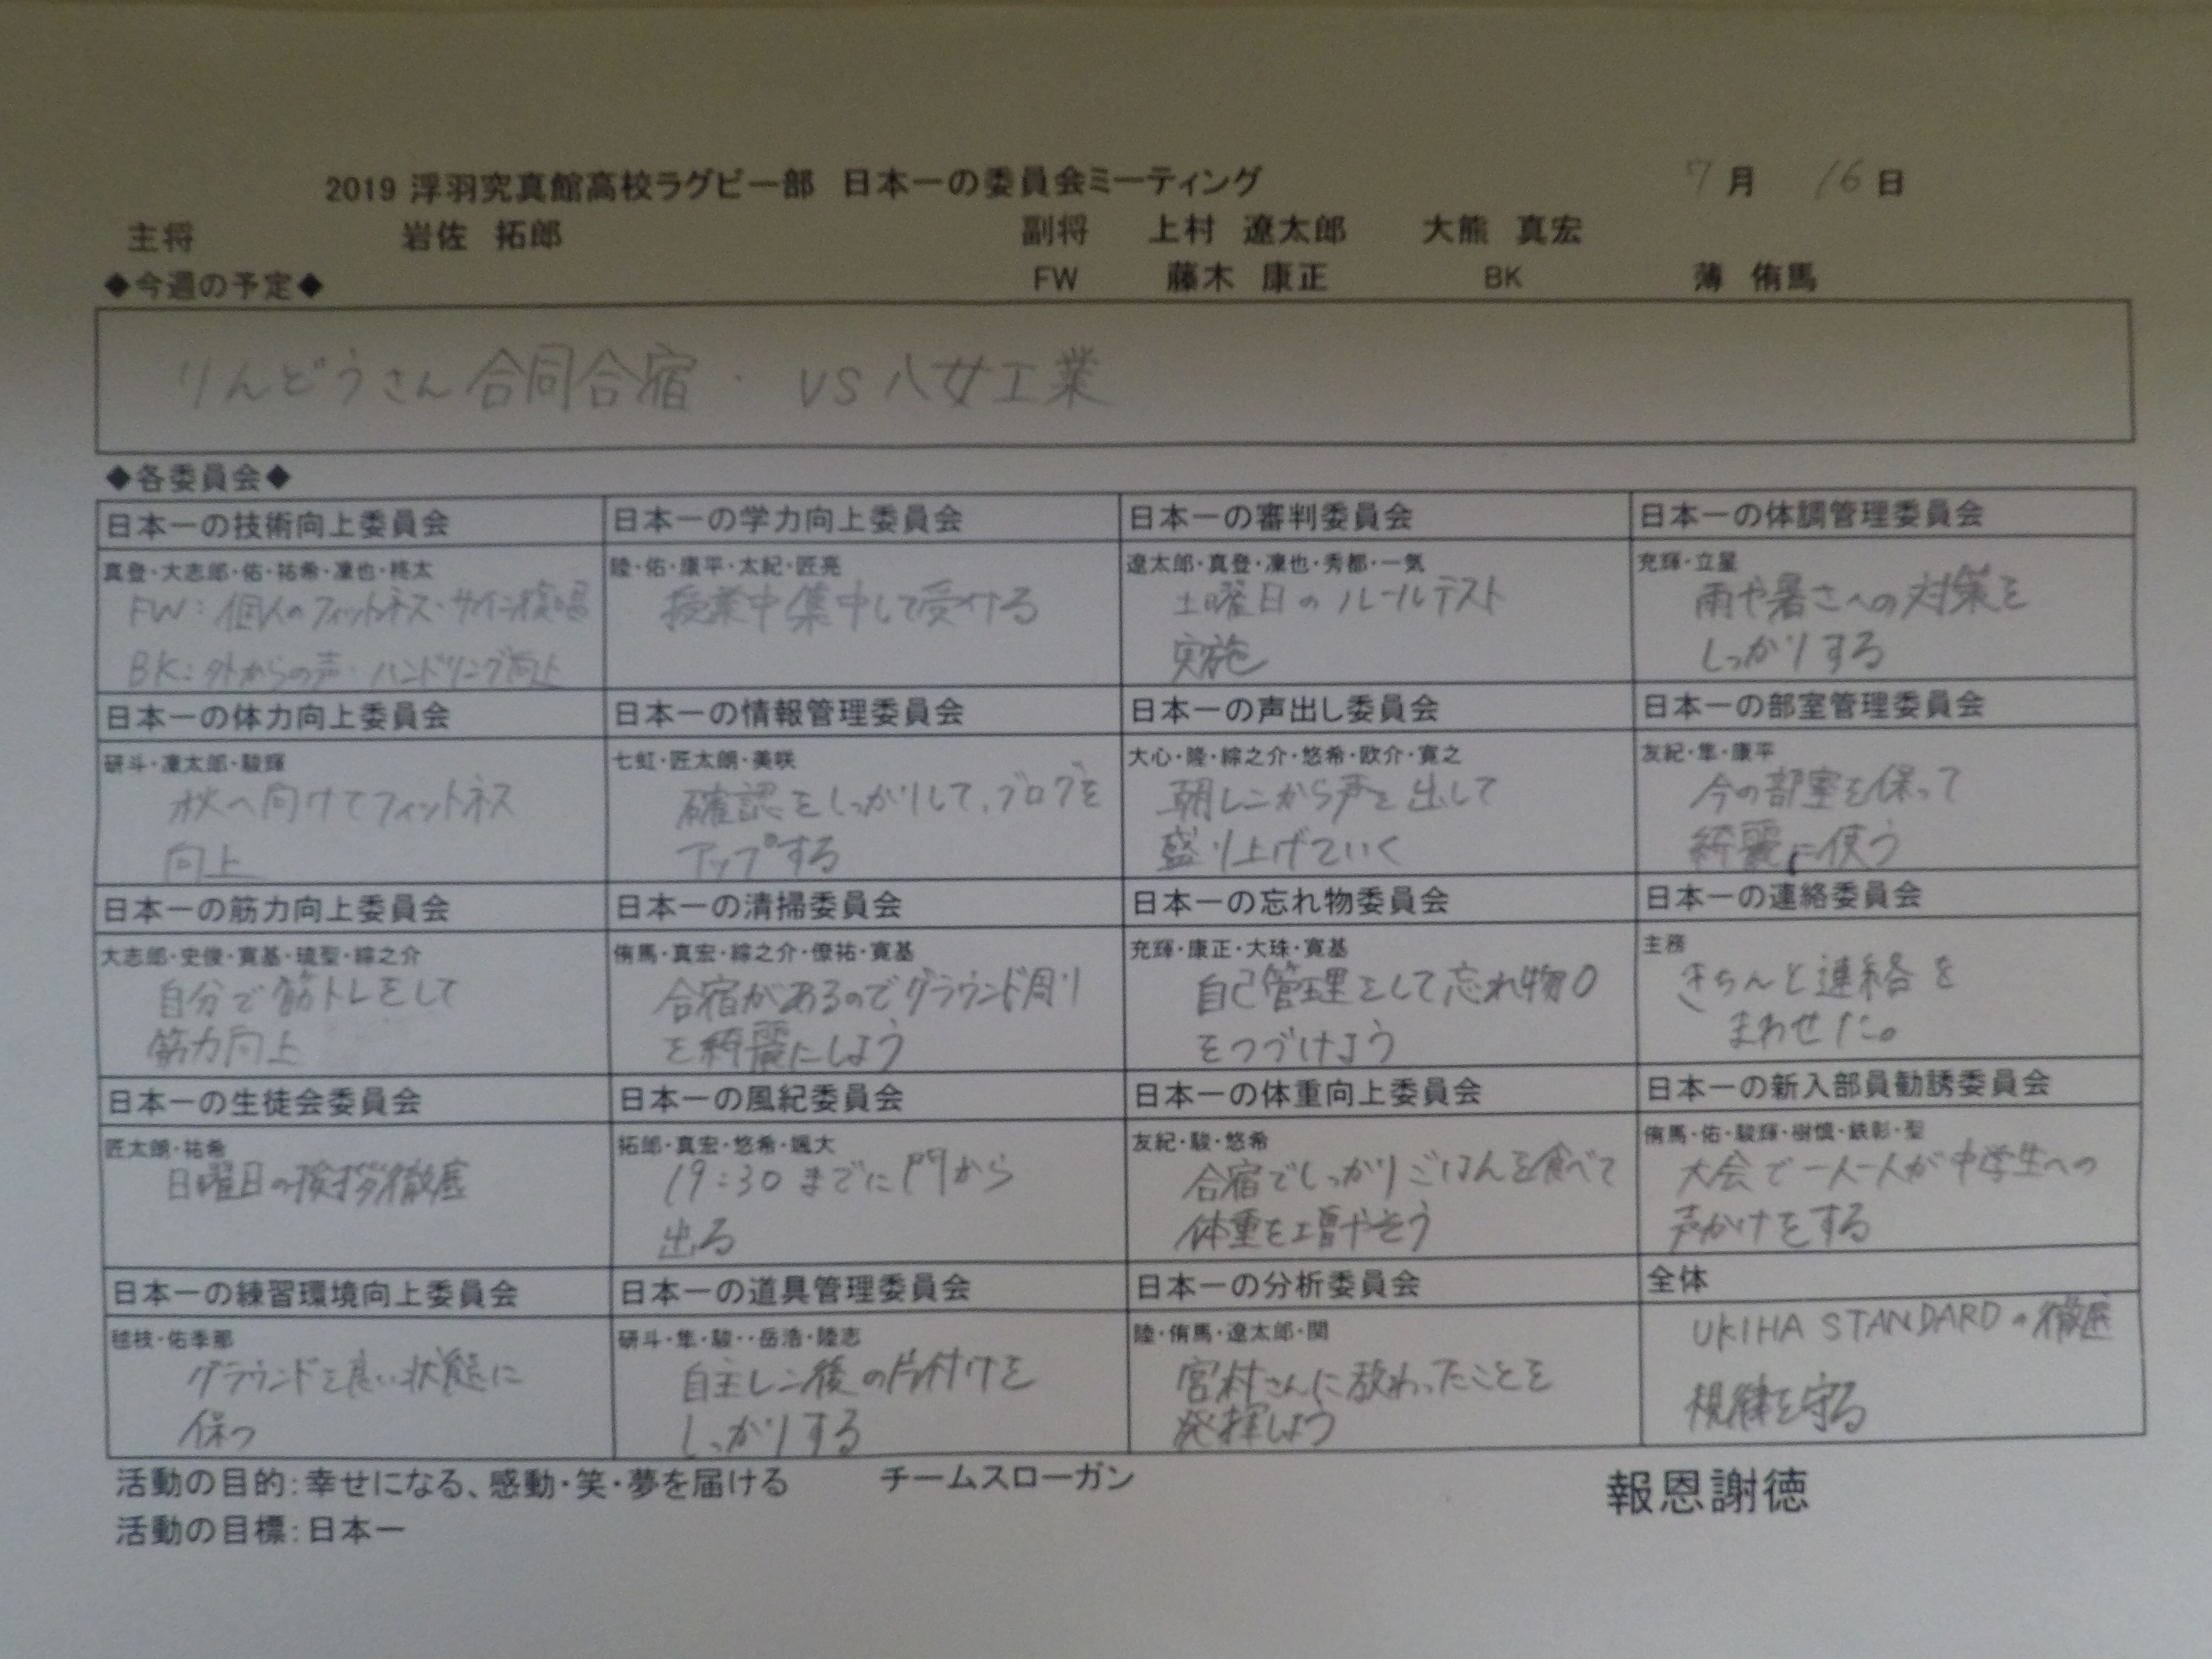 2019 浮羽究真館高校ラグビー部 日本一の委員会ミーティング 7月 16日
主将 岩佐 拓郎 副将 上村 遼太郎 大熊 真宏
◆今週の予定◆ FW 藤木 康正 BK 薄 侑馬
りんどうさん合同合宿・ VS 八女工業
◆各委員会◆
日本一の技術向上委員会
真登・大志郎・佑・祐希・凜也・柊太
FW:個人のフィットネス・サイン
BK:外からの声・ハンドリング向上
日本一の学力向上委員会
陸・佑・康平・太紀・匠亮
授業中集中して受ける
日本一の審判委員会
遼太郎・真登・凜也・秀都・一気
土曜日のルールテスト
実施
日本一の体調管理委員会
充輝・立星
雨や暑さへの対策を
しっかりする
日本一の体力向上委員会
研斗・凜太郎・駿輝
秋へ向けてフィットネス
向上
日本一の情報管理委員会
七虹・匠太朗・美咲
確認をしっかりして、ブログを
アップする
日本一の声出し委員会
大心・隆・綜之介・悠希・欧介・寛之
朝レンから声を出して
盛り上げていく
日本一の部室管理委員会
友紀・隼・康平
今の部室を保って
綺麗に使う
日本一の筋力向上委員会
大志郎・史俊・寛基・琉聖・綜之介
自分で筋トレをして
筋力向上
日本一の清掃委員会
侑馬・真宏・綜之介・僚祐・寛基
合宿があるのでグラウンド周り
を綺麗にしよう
日本一の忘れ物委員会
充輝・康正・大珠・寛基
自己管理をして忘れ物0
をつづけよう
日本一の連絡委員会
主務
きちんと連絡を
まわせた。
日本一の生徒会委員会
匠太朗・祐希
日曜日の挨拶徹底
日本一の風紀委員会
拓郎・真宏・悠希・颯大
19:30までに門から
出る
日本一の体重向上委員会
友紀・駿・悠希
合宿でしっかりごはんを食べて
体重を増やそう
日本一の新入部員勧誘委員会
侑馬・佑・駿輝・樹慎・鉄彰・聖
大会で一人一人が中学生への
声かけをする
日本一の練習環境向上委員会
毬枝・佑季那
グラウンドを良い状態に
保つ
日本一の道具管理委員会
研斗・隼・駿・・岳浩・陸志
自主レン後の片付けを
しっかりする
日本一の分析委員会
陸・侑馬・遼太郎・関
宮村さんに教わったことを
発揮しよう
全体
UKIHA STANDARDの徹底
規律を守る
活動の目的:幸せになる、感動・笑・夢を届ける チームスローガン 報恩謝徳
活動の目標:日本一